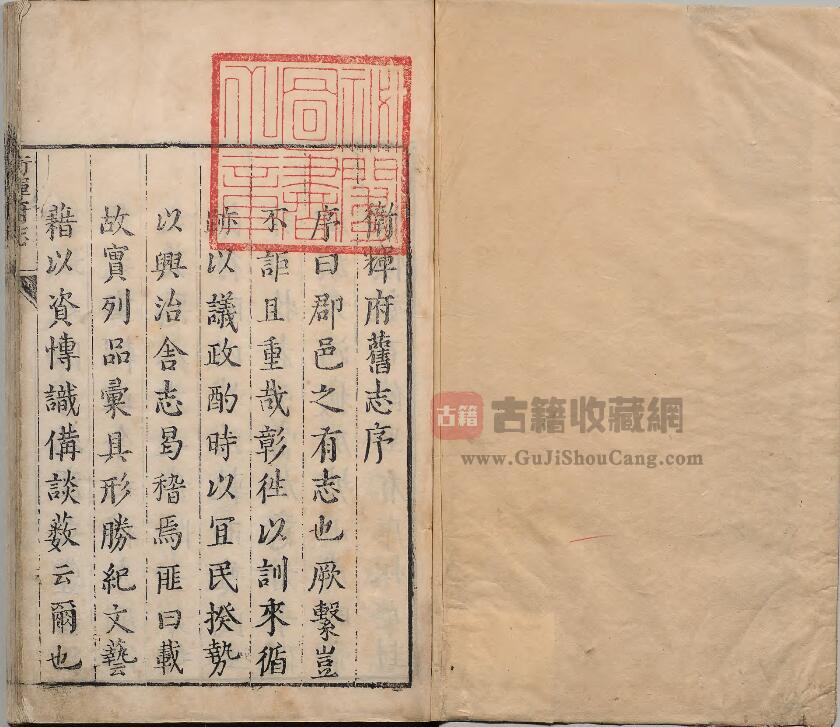 衛輝府舊志序
序曰郡邑之有志也厥繫豈
不詎且重哉彰徃以訓來循
跡以議政酌時以冝民揆勢
以興治舍志曷稽焉匪曰載
故實列品彙具形勝紀文藝
藉以資慱識備談藪云爾也
衛輝府志
古籍
古籍收藏網
www.GuJiShouCang.com